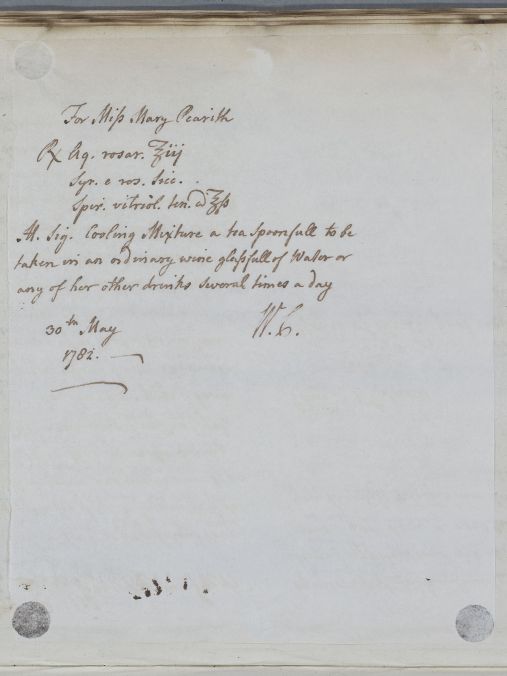 For Miss Mary Pearith
℞ Aq. rosar. ℥iij
Syr. e ros. sicc.
Spir. vitriol. ten. a ℥ß
M. Sig. Cooling Mixture a tea spoonfull to be
taken in an ordinary wine glassfull of Water or
any of her other drinks several times a day
30th May
W. C.
1782.